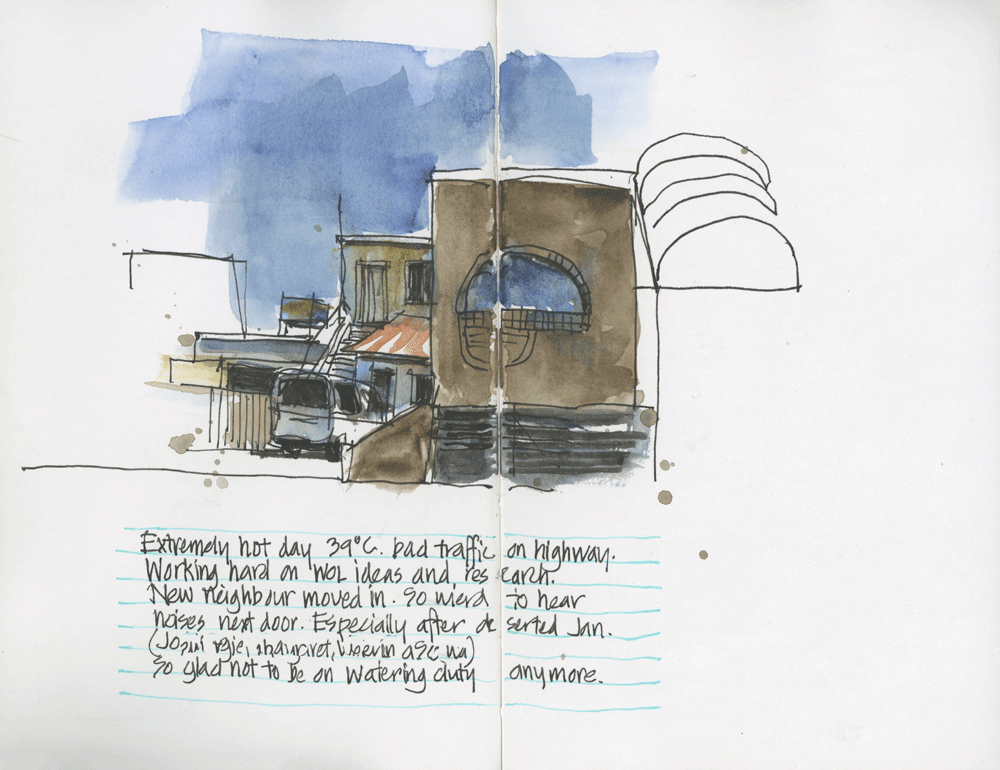 Extremely hot day 39°C. bad traffic on highway.
Working hard on WOL ideas and research.
New neighbour moved in. So wierd to hear
noises next door. Especially after deserted Jan.
So glad not to be on watering duty anymore.